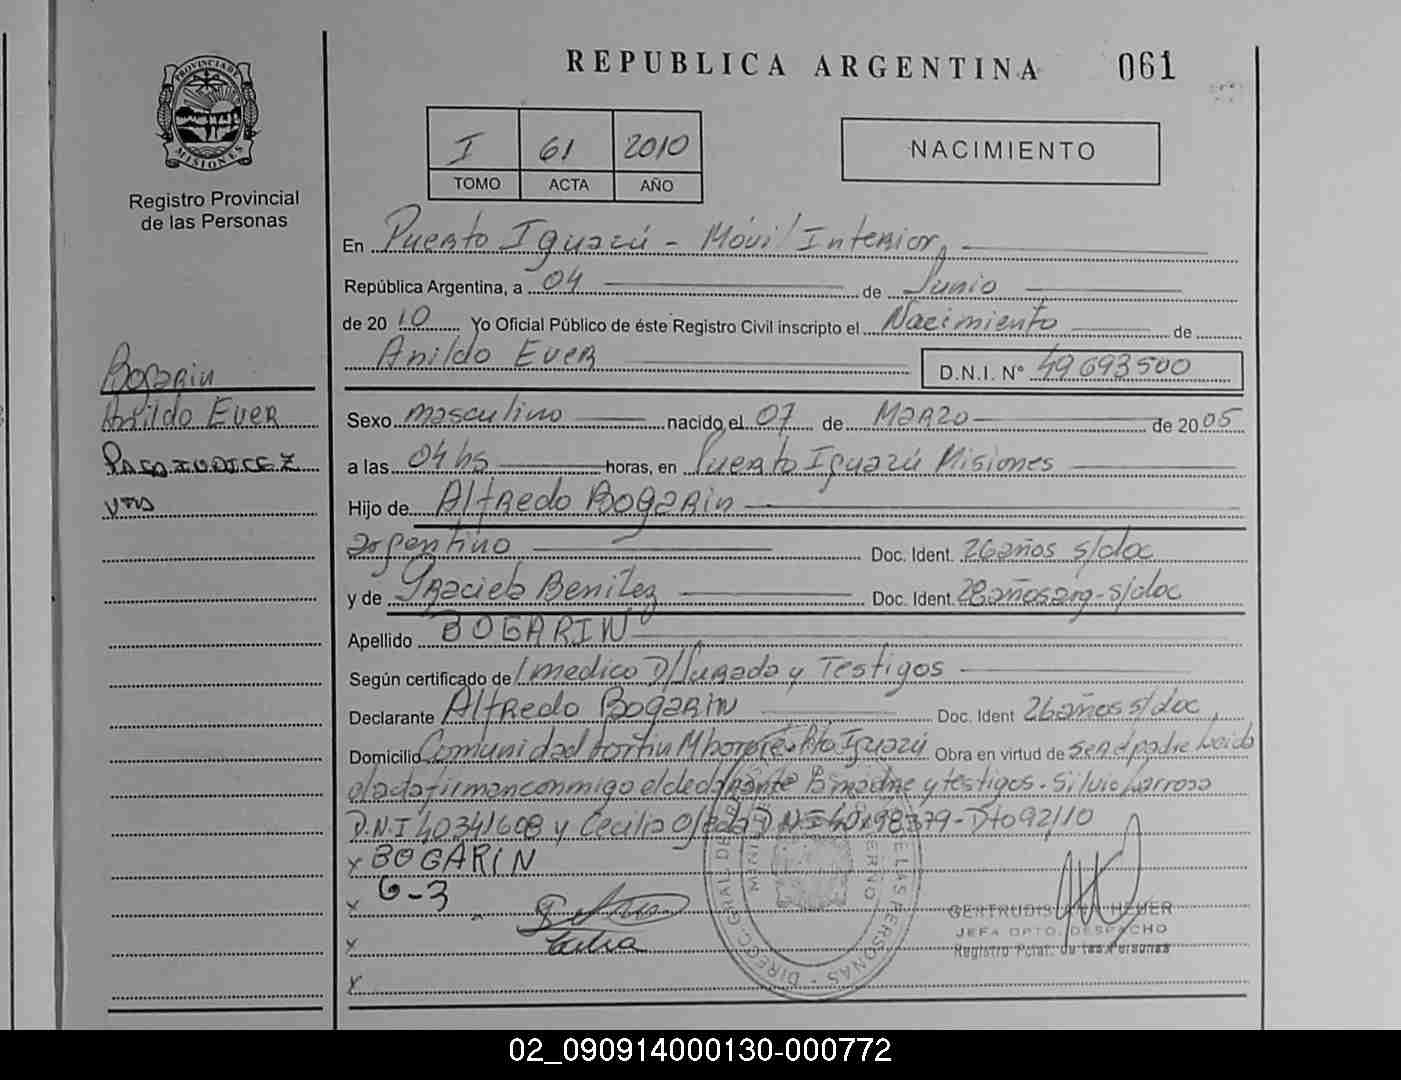 REPUBLICA ARGENTINA 061
PROVINCIA DE MISIONES
Registro Provincial
de las Personas
I 61 2010
TOMO ACTA AÑO
NACIMIENTO
En Puerto Iguazú - Móvil Interior,
República Argentina, a 04 de Junio
de 2010 Yo Oficial Público de éste Registro Civil inscripto el Nacimiento de
Anildo Ever D.N.I. N° 49693500
Bogarin
Anildo Ever
Sexo masculino nacido el 07 de Marzo de 2005
a las 04 hs horas, en Puerto Iguazú Misiones
Hijo de Alfredo Bogarin
argentino Doc. Ident. 26 años s/doc
y de Graciela Benitez Doc. Ident. 28 años arg - s/doc
Apellido BOGARIN
Según certificado de medico D/Jurada y Testigos
Declarante Alfredo Bogarin Doc. Ident 26 años s/doc
Domicilio Comunidad Fortin Mbororé - Pto Iguazú Obra en virtud de ser el padre Leida
el acta firman conmigo el declarante la madre y testigos - Silvio Barroso
D.N.I 40341608 y Cecilio D.N.I - Dto 92/10
x BOGARIN
x 6-3
x
x
GERTRUDIS HEUER
JEFA DPTO. DESPACHO
Registro Pcial. de las Personas
02_090914000130-000772